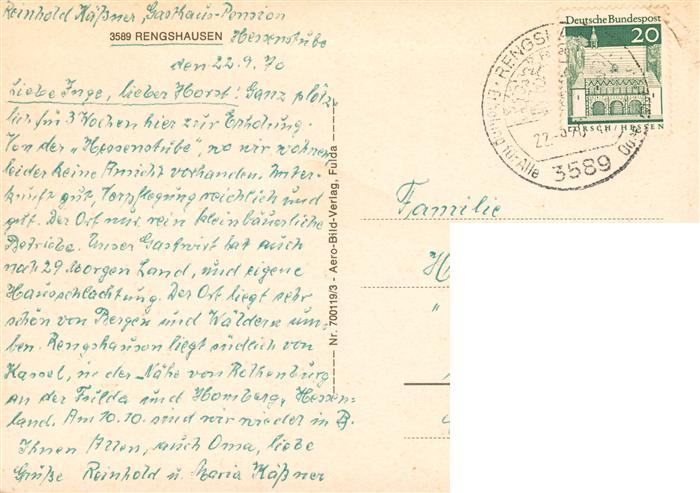 Reinhold Käßner, Gasthaus-Pension
3589 RENGSHAUSEN Hessenstube
den 22.9.70
Liebe Inge, lieber Horst! Ganz plötz-
lich für 3 Wochen hier zur Erholung.
Von der „Hessenstube", wo wir wohnen
leider keine Ansicht vorhanden. Unter-
kunft gut, Verpflegung reichlich und
gut. Der Ort nur rein kleinbäuerliche
Betriebe. Unser Gastwirt hat auch
noch 29 Morgen Land, und eigene
Hausschlachtung. Der Ort liegt sehr
schön von Bergen und Wäldern um-
ben. Rengshausen liegt südlich von
Kassel, in der Nähe von Rothenburg
an der Fulda und Homberg, Hessen-
land. Am 10.10. sind wir wieder in B.
Ihnen Allen, auch Oma, liebe
Grüße Reinhold u. Maria Käßner
Nr. 700119/3 - Aero-Bild-Verlag, Fulda
Deutsche Bundespost
20
LORSCH/HESSEN
RENGSH
22.-9.70
3589
für Alle
Familie
H
"